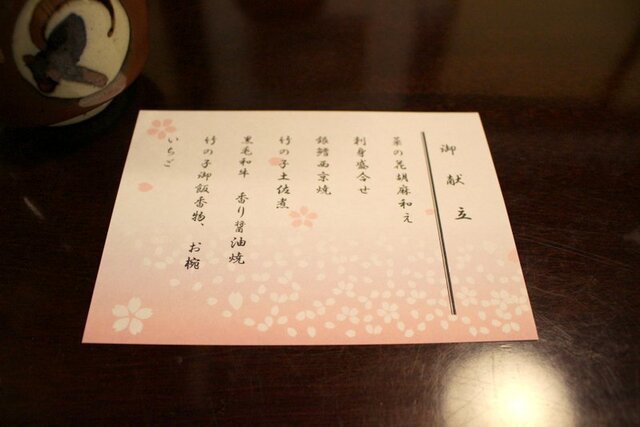 御献立
菜の花胡麻和え
刺身盛合せ
銀鱈西京焼
竹の子土佐煮
黒毛和牛 香り醤油焼
竹の子御飯香物、お椀
いちご